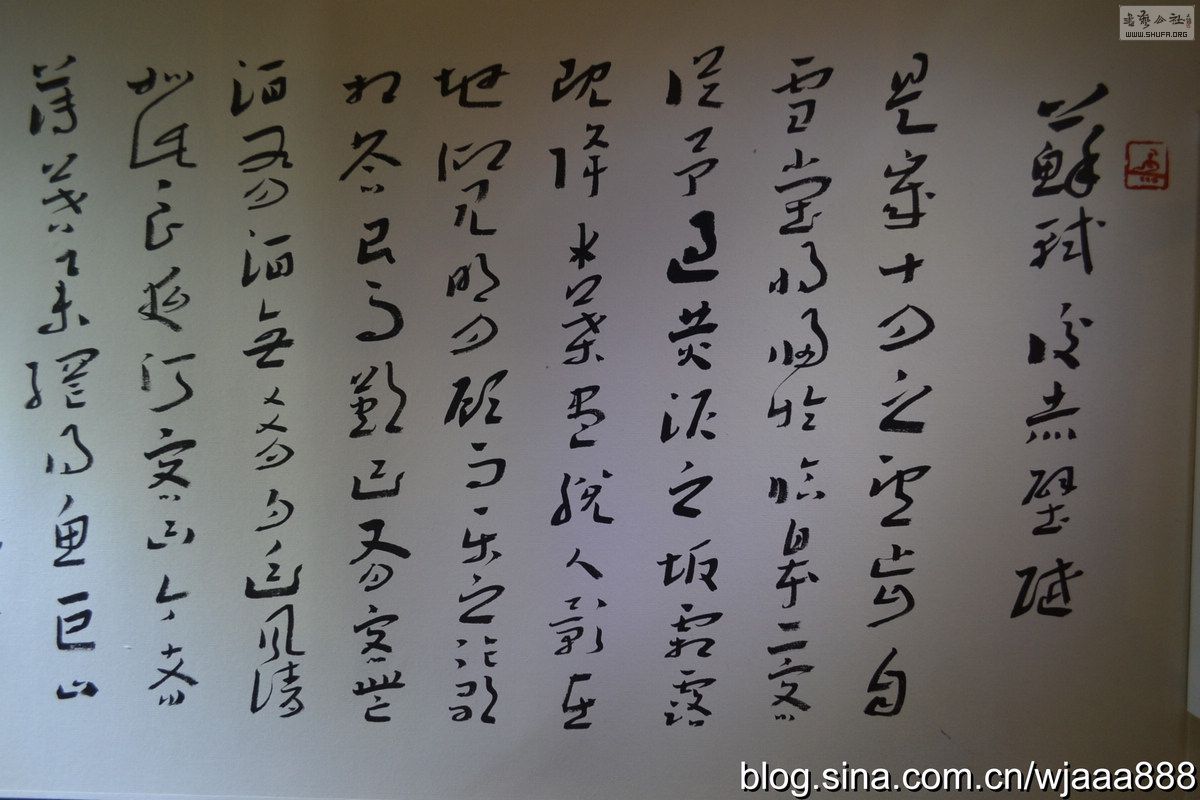 蘇軾後赤壁賦
是歲十月之望步自
雪堂將歸於臨皋二客
從予過黃泥之坂霜露
既降木葉盡脫人影在
地仰見明月顧而樂之行歌
相答已而歎曰有客無
酒有酒無肴月白風清
如此良夜何客曰今者
薄暮舉網得魚巨口
書藝公社
WWW.SHUFA.ORG
blog.sina.com.cn/wjaaa888